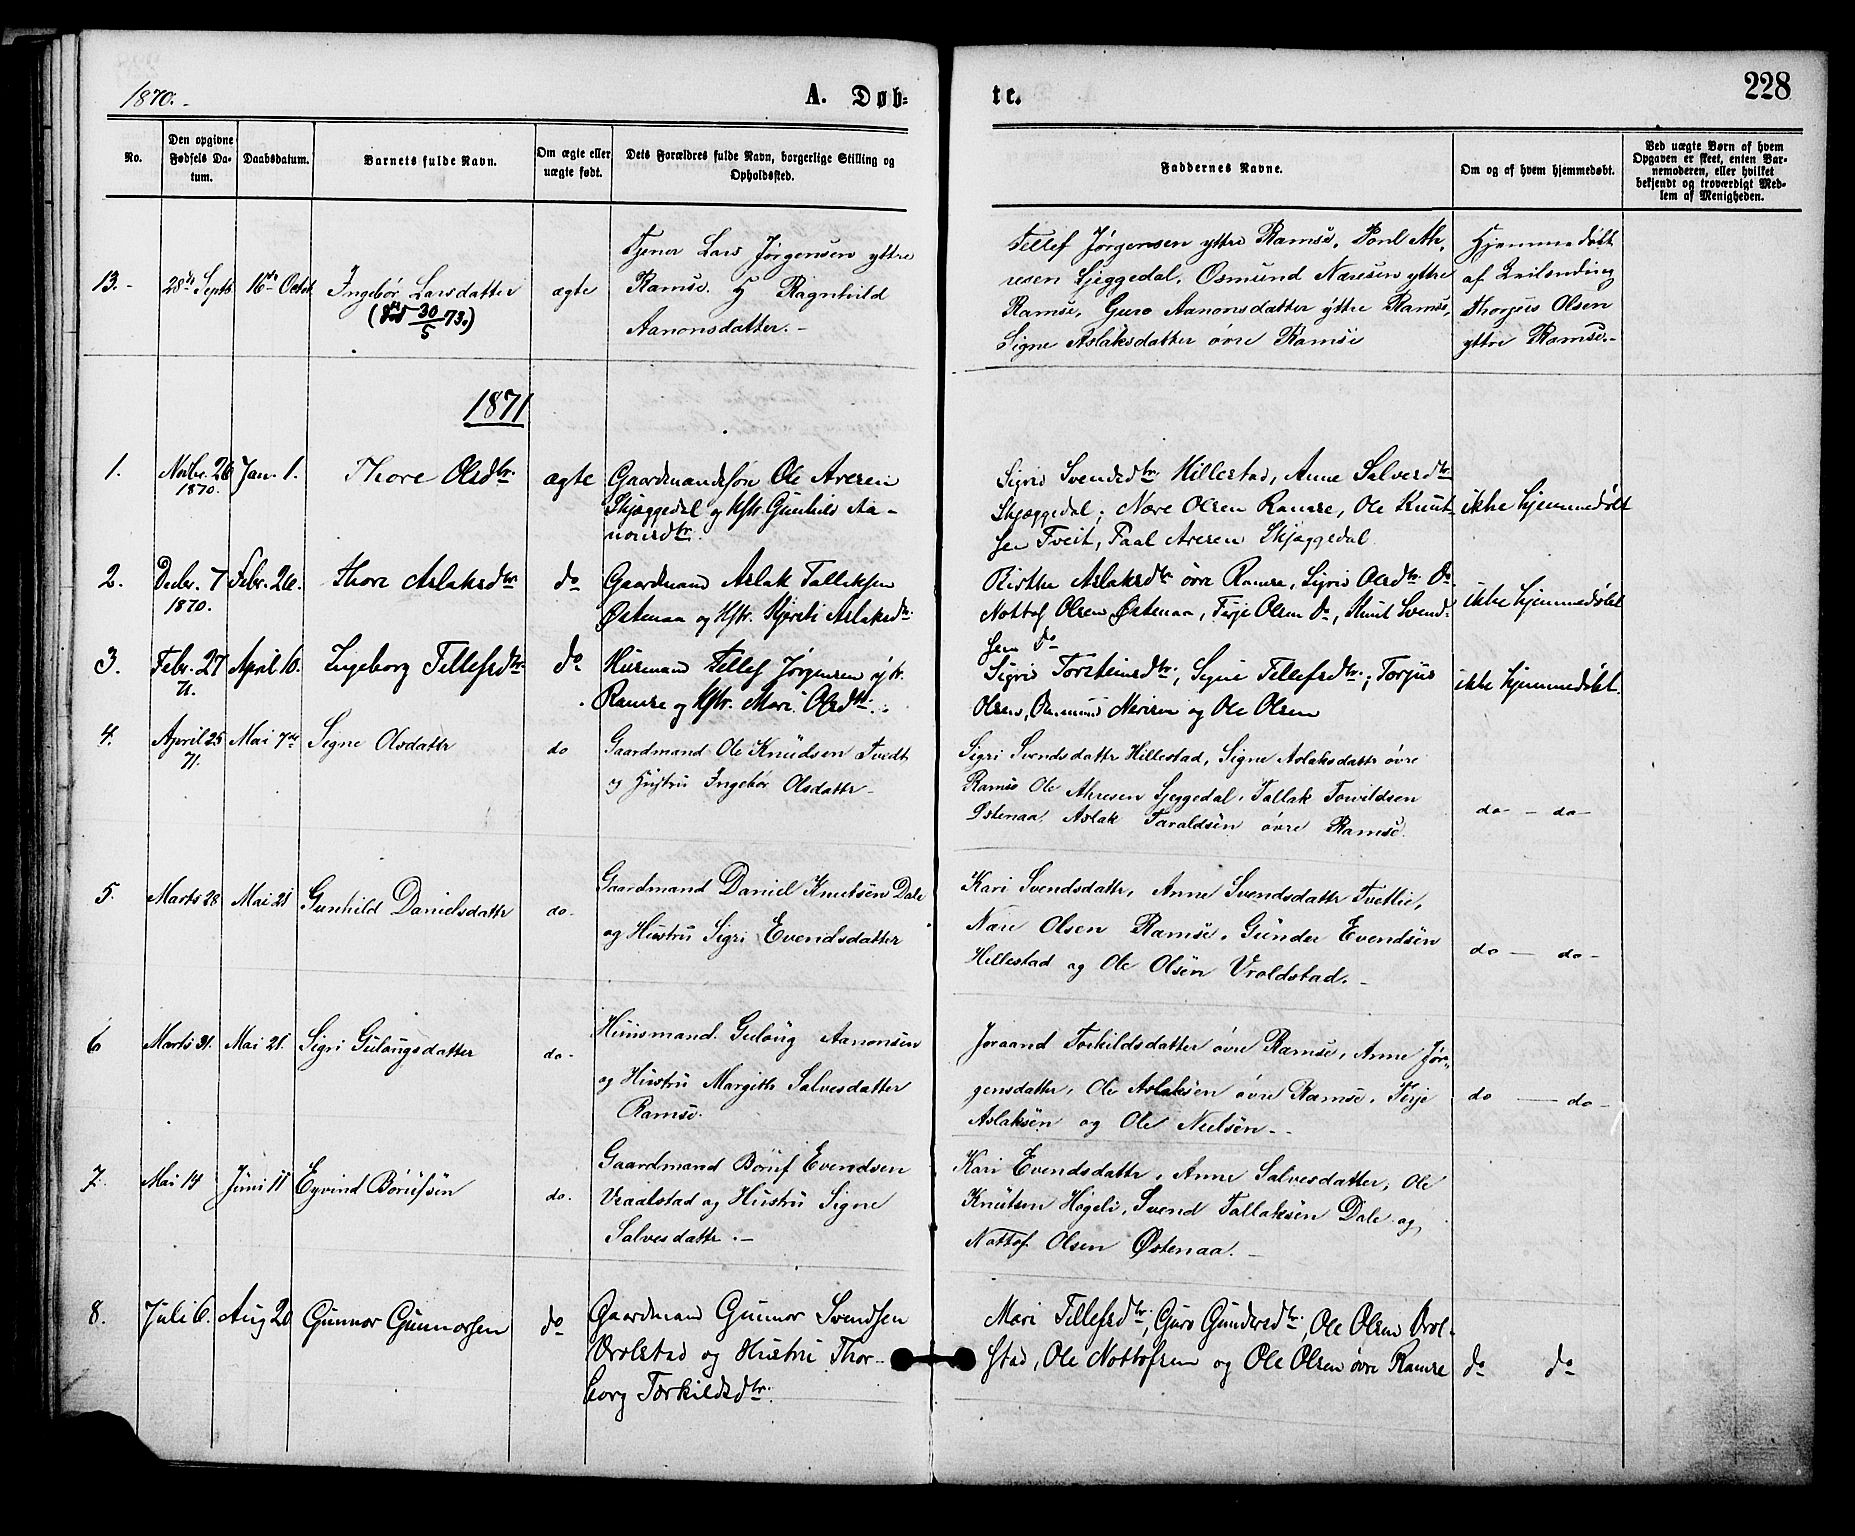 1870.-
A. Døb=
te.
228
No.
Den opgivne Fødsels Datum.
Daabsdatum.
Barnets fulde Navn.
Om ægte eller uægte født.
Dets Forældres fulde Navn, borgerlige Stilling og Opholdsted.
Faddernes Navne.
Om og af hvem hjemmedøbt.
Ved uægte Børn af hvem
Opgaven er skeet, enten Bar-
nemoderen, eller hvilket
bekjendt og troværdigt Med-
lem af Menigheden.
13.-
28de Septb
16de Octob
Ingebør Larsdatter
(død 30/5 73.)
ægte
Tjener Lars Jørgensen yttre
Ramse. H Ragnhild
Aanonsdatter.-
Tellef Jørgensen yttre Ramse, Poul Ak-
resen Sjeggedal, Osmund Næresen yttre
Ramse, Guro Aanonsdatter yttre Ramse,
Signe Aslaksdatter øvre Ramse
Hjemmedøbt
af
Thorjus Olsen
yttre Ramse.-
1871
1.
Novbr. 26
1870.
Jan. 1.
Thore Olsdtr.
ægte
Gaardmandsøn Ole Avesen
Skjæggedal og Hstr. Gunhild Aa-
nonsdtr.
Sigrid Svendsdtr. Hillestad, Anne Salvesdtr
Skjæggedal; Nære Olsen Ramse, Ole Knut-
sen Tveit, Paal Avesen Skjæggedal
ikke hjemmedøbt
2.
Decbr. 7
1870.
Febr. 26.
Thore Aslaksdtr
do
Gaardmand Aslak Tallaksen
Østenaa og Hstr. Kjersti Aslaksdtr.
Birthe Aslaksdtr øvre Ramse, Sigrid Olsdtr. do
Nottof Olsen Østenaa, Terje Olsen do, Knut Svend-
sen do
ikke hjemmedøbt
3.
Febr. 27
71.
April 10.
Ingeborg Tellefsdtr.
do
Husmand Tellef Jørgensen ytr.
Ramse og Hstr. Mari Olsdtr.
Sigrid Torsteinsdtr., Signe Tellefsdtr.; Torjus
Olsen, Osmund Næresen og Ole Olsen
ikke hjemmedøbt.
4.
April 25
71.
Mai 7de
Signe Olsdattr
do
Gaardmand Ole Knudsen Tvedt
og Hustru Ingebør Olsdattr-
Sigri Svendsdattr Hillestad, Signe Aslaksdattr øvre
Ramse Ole Akresen Sjeggedal, Tallak Torvildsen
Østenaa, Aslak Taraldsen øvre Ramse.
do - do-
5.
Marts 28
Mai 21
Gunhild Danielsdattr
do-
Gaardmand Daniel Knutsen Dale
og Hustru Sigri Evendsdatter
Kari Svendsdattr, Anne Svendsdattr Tvetlie,
Nære Olsen Ramse, Gunder Evendsen
Hillestad og Ole Olsen Vroldstad.-
do - do-
6
Marts 31.
Mai 21.
Sigri Gulougsdatter
do-
Huusmand Guloug Aanonsen
og Hustru Margith Salvesdatter
Ramse.
Joraand Torkildsdatter øvre Ramse, Anne Jør-
gensdattr, Ole Aslaksen øvre Ramse, Terje
Aslaksen og Ole Nielsen--
do - do-
7.
Mai 14
Juni 11
Eyvind Børufsen
do.
Gaardmand Børuf Evendsen
Vraalstad og Hustru Signe
Salvesdattr.-
Kari Evendsdattr, Anne Salvesdatter, Ole
Knutsen Høgeli, Svend Tallaksen Dale og
Nottof Olsen Østenaa.-
8.
Juli 6.
Aug 20
Gunnar Gunnarsen
do
Gaardmand Gunnar Svendsen
Vrolstad og Hustru Thor-
borg Torkildsdtr.
Mari Tellefsdtr., Guro Gundersdtr., Ole Olsen Vrol-
stad, Ole Nottofsen og Ole Olsen øvre Ramse
do do